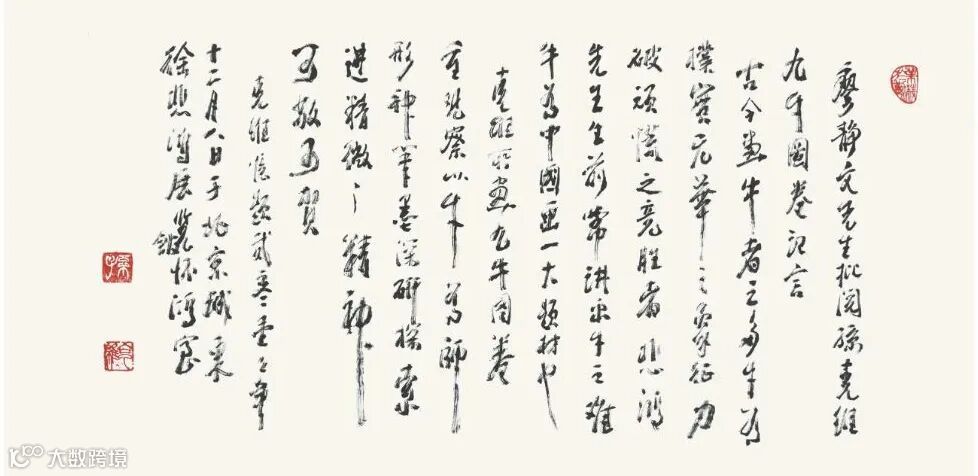 廖静文先生批阅孫克維
九牛圖卷记言
古今画牛者之多牛为
樸實无華之象征力
破顽之竞胜者悲鸿
先生生前常讲画牛之难
牛为中國画一大题材也
克維所画九牛图卷
重观察以牛为师
形神笔墨深研探索
进精微之精神
可敬可贺
克维忆题贰零壹壹年
十二月八日于北京城東
徐悲鸿展览馆怀鸿室
大数跨境